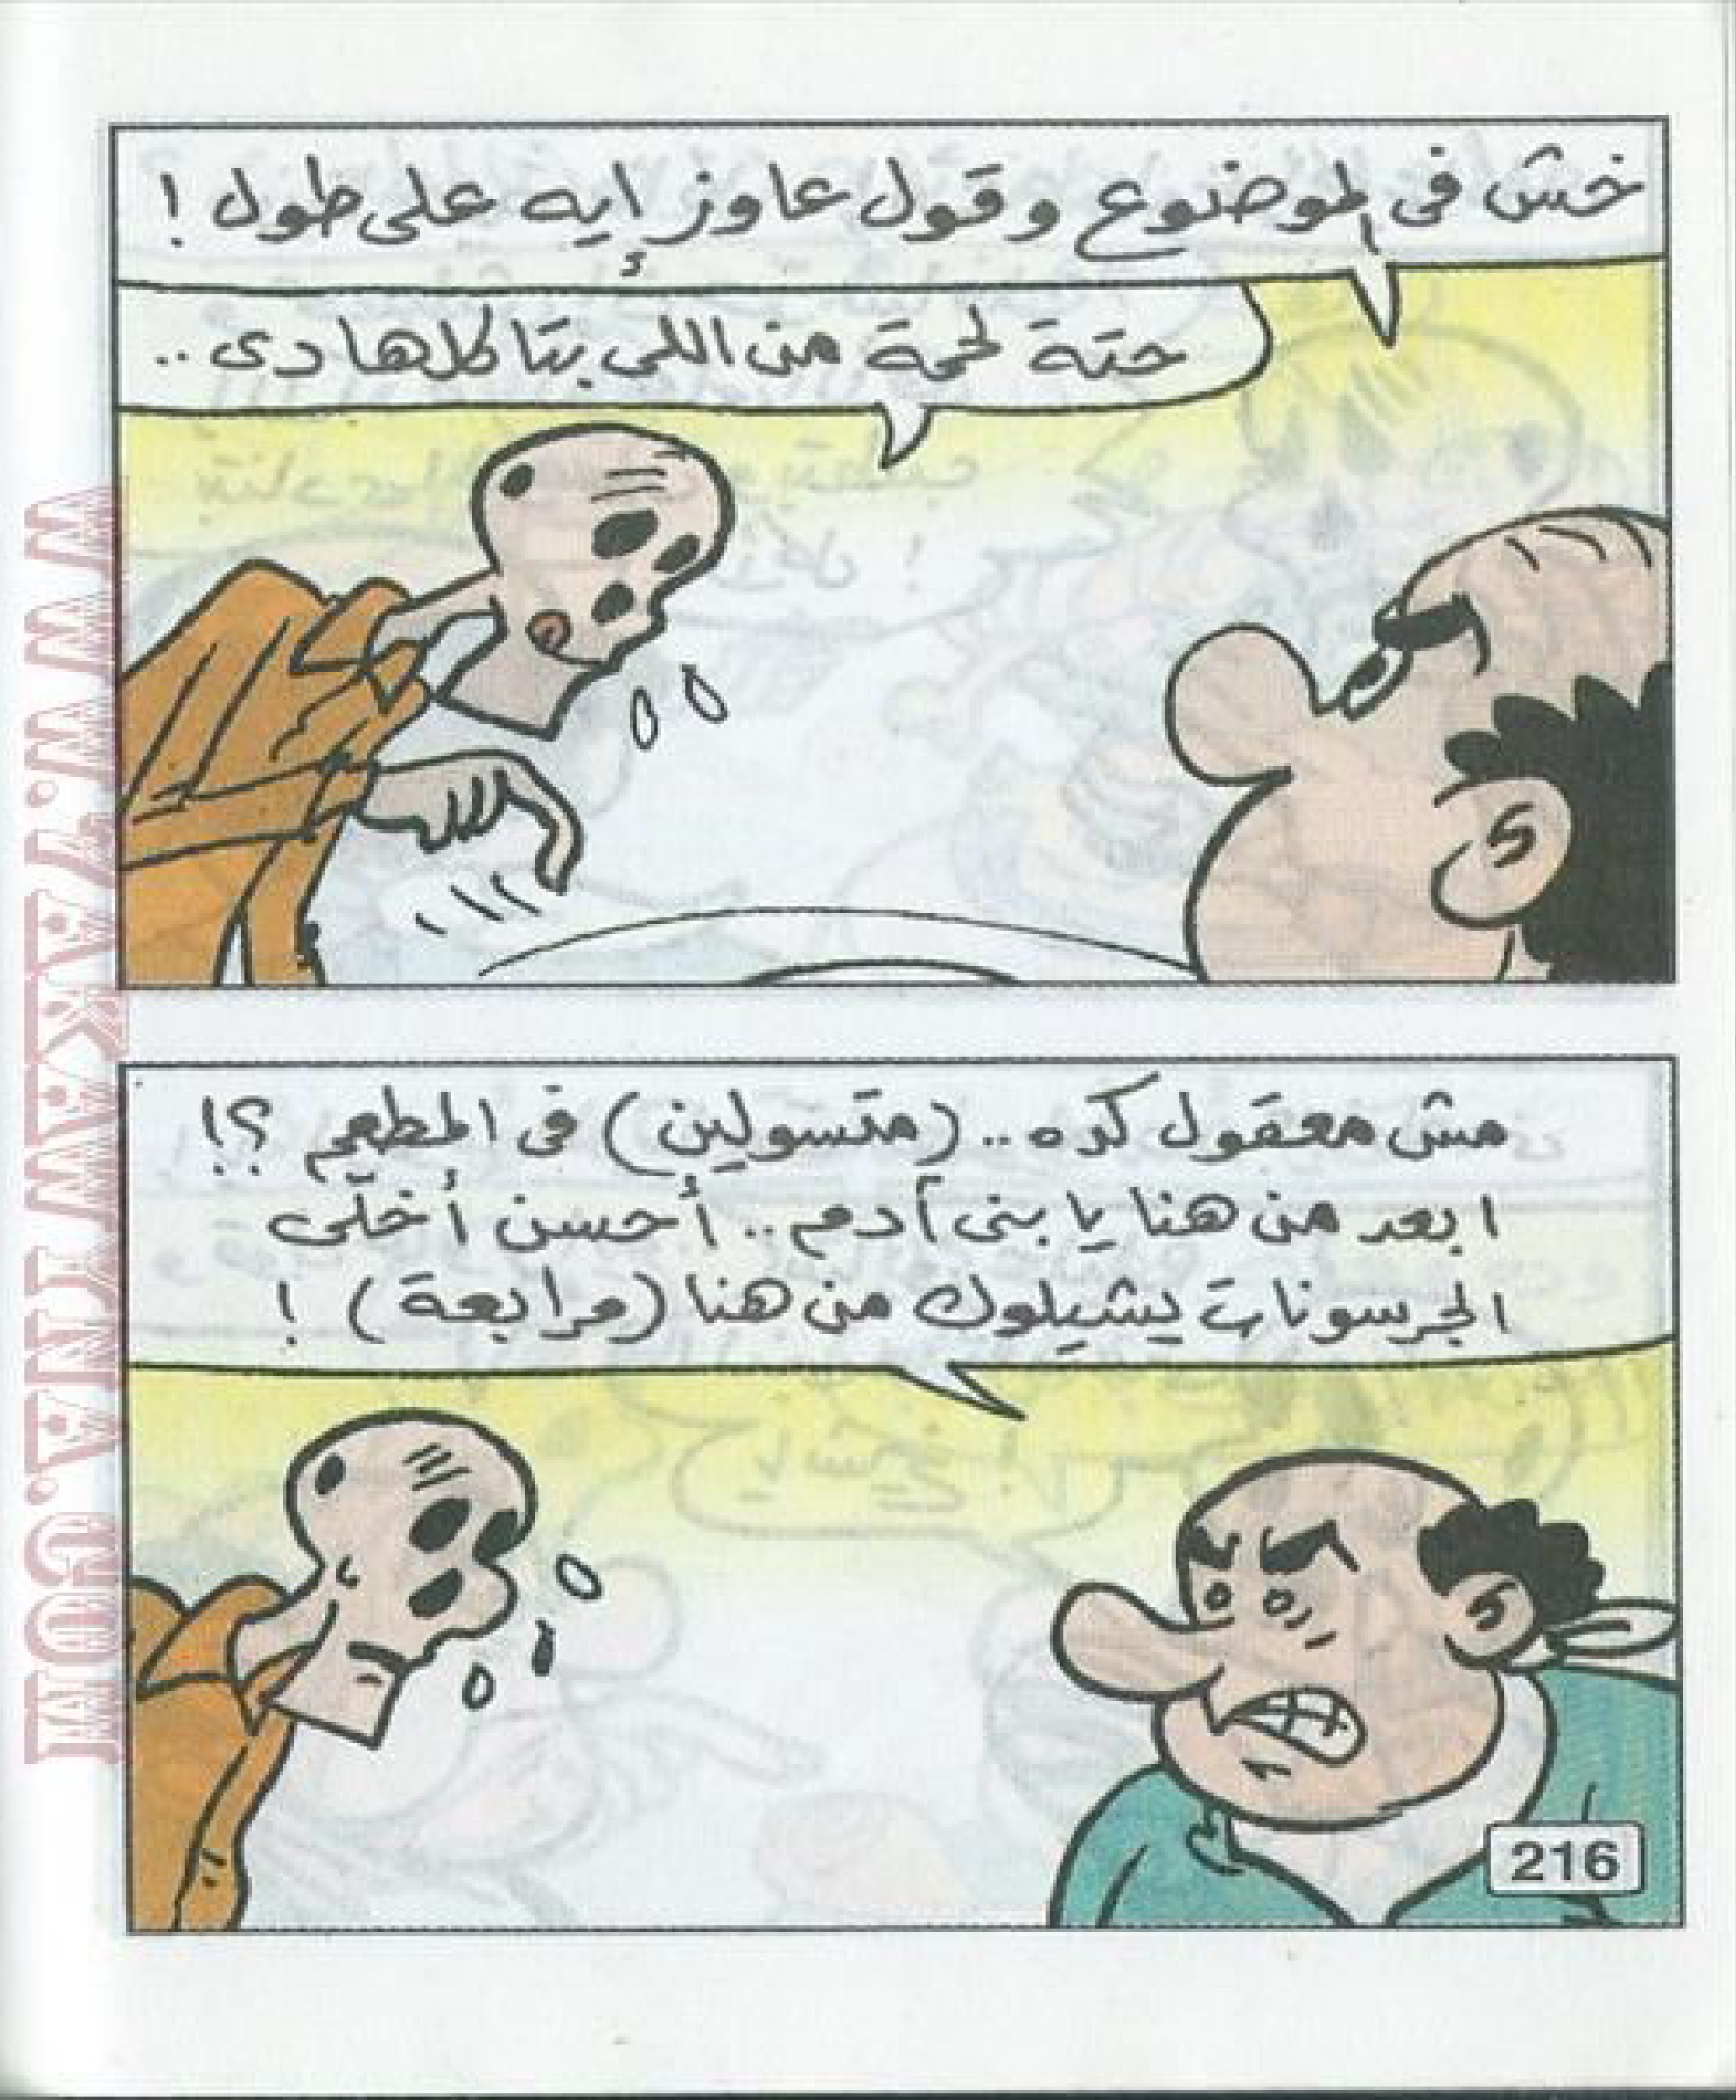 خش فى الموضوع وقول عاوز إيه على طول !
حتة لحمة من اللى بتاكلها دى ..
مش معقول كده .. (متسولين) فى المطعم ؟!
ابعد من هنا يا بنى آدم .. أحسن أخلّى
الجرسونات يشيلوك من هنا (مرابعة) !
216
WWW.7AKAWIINA.COM